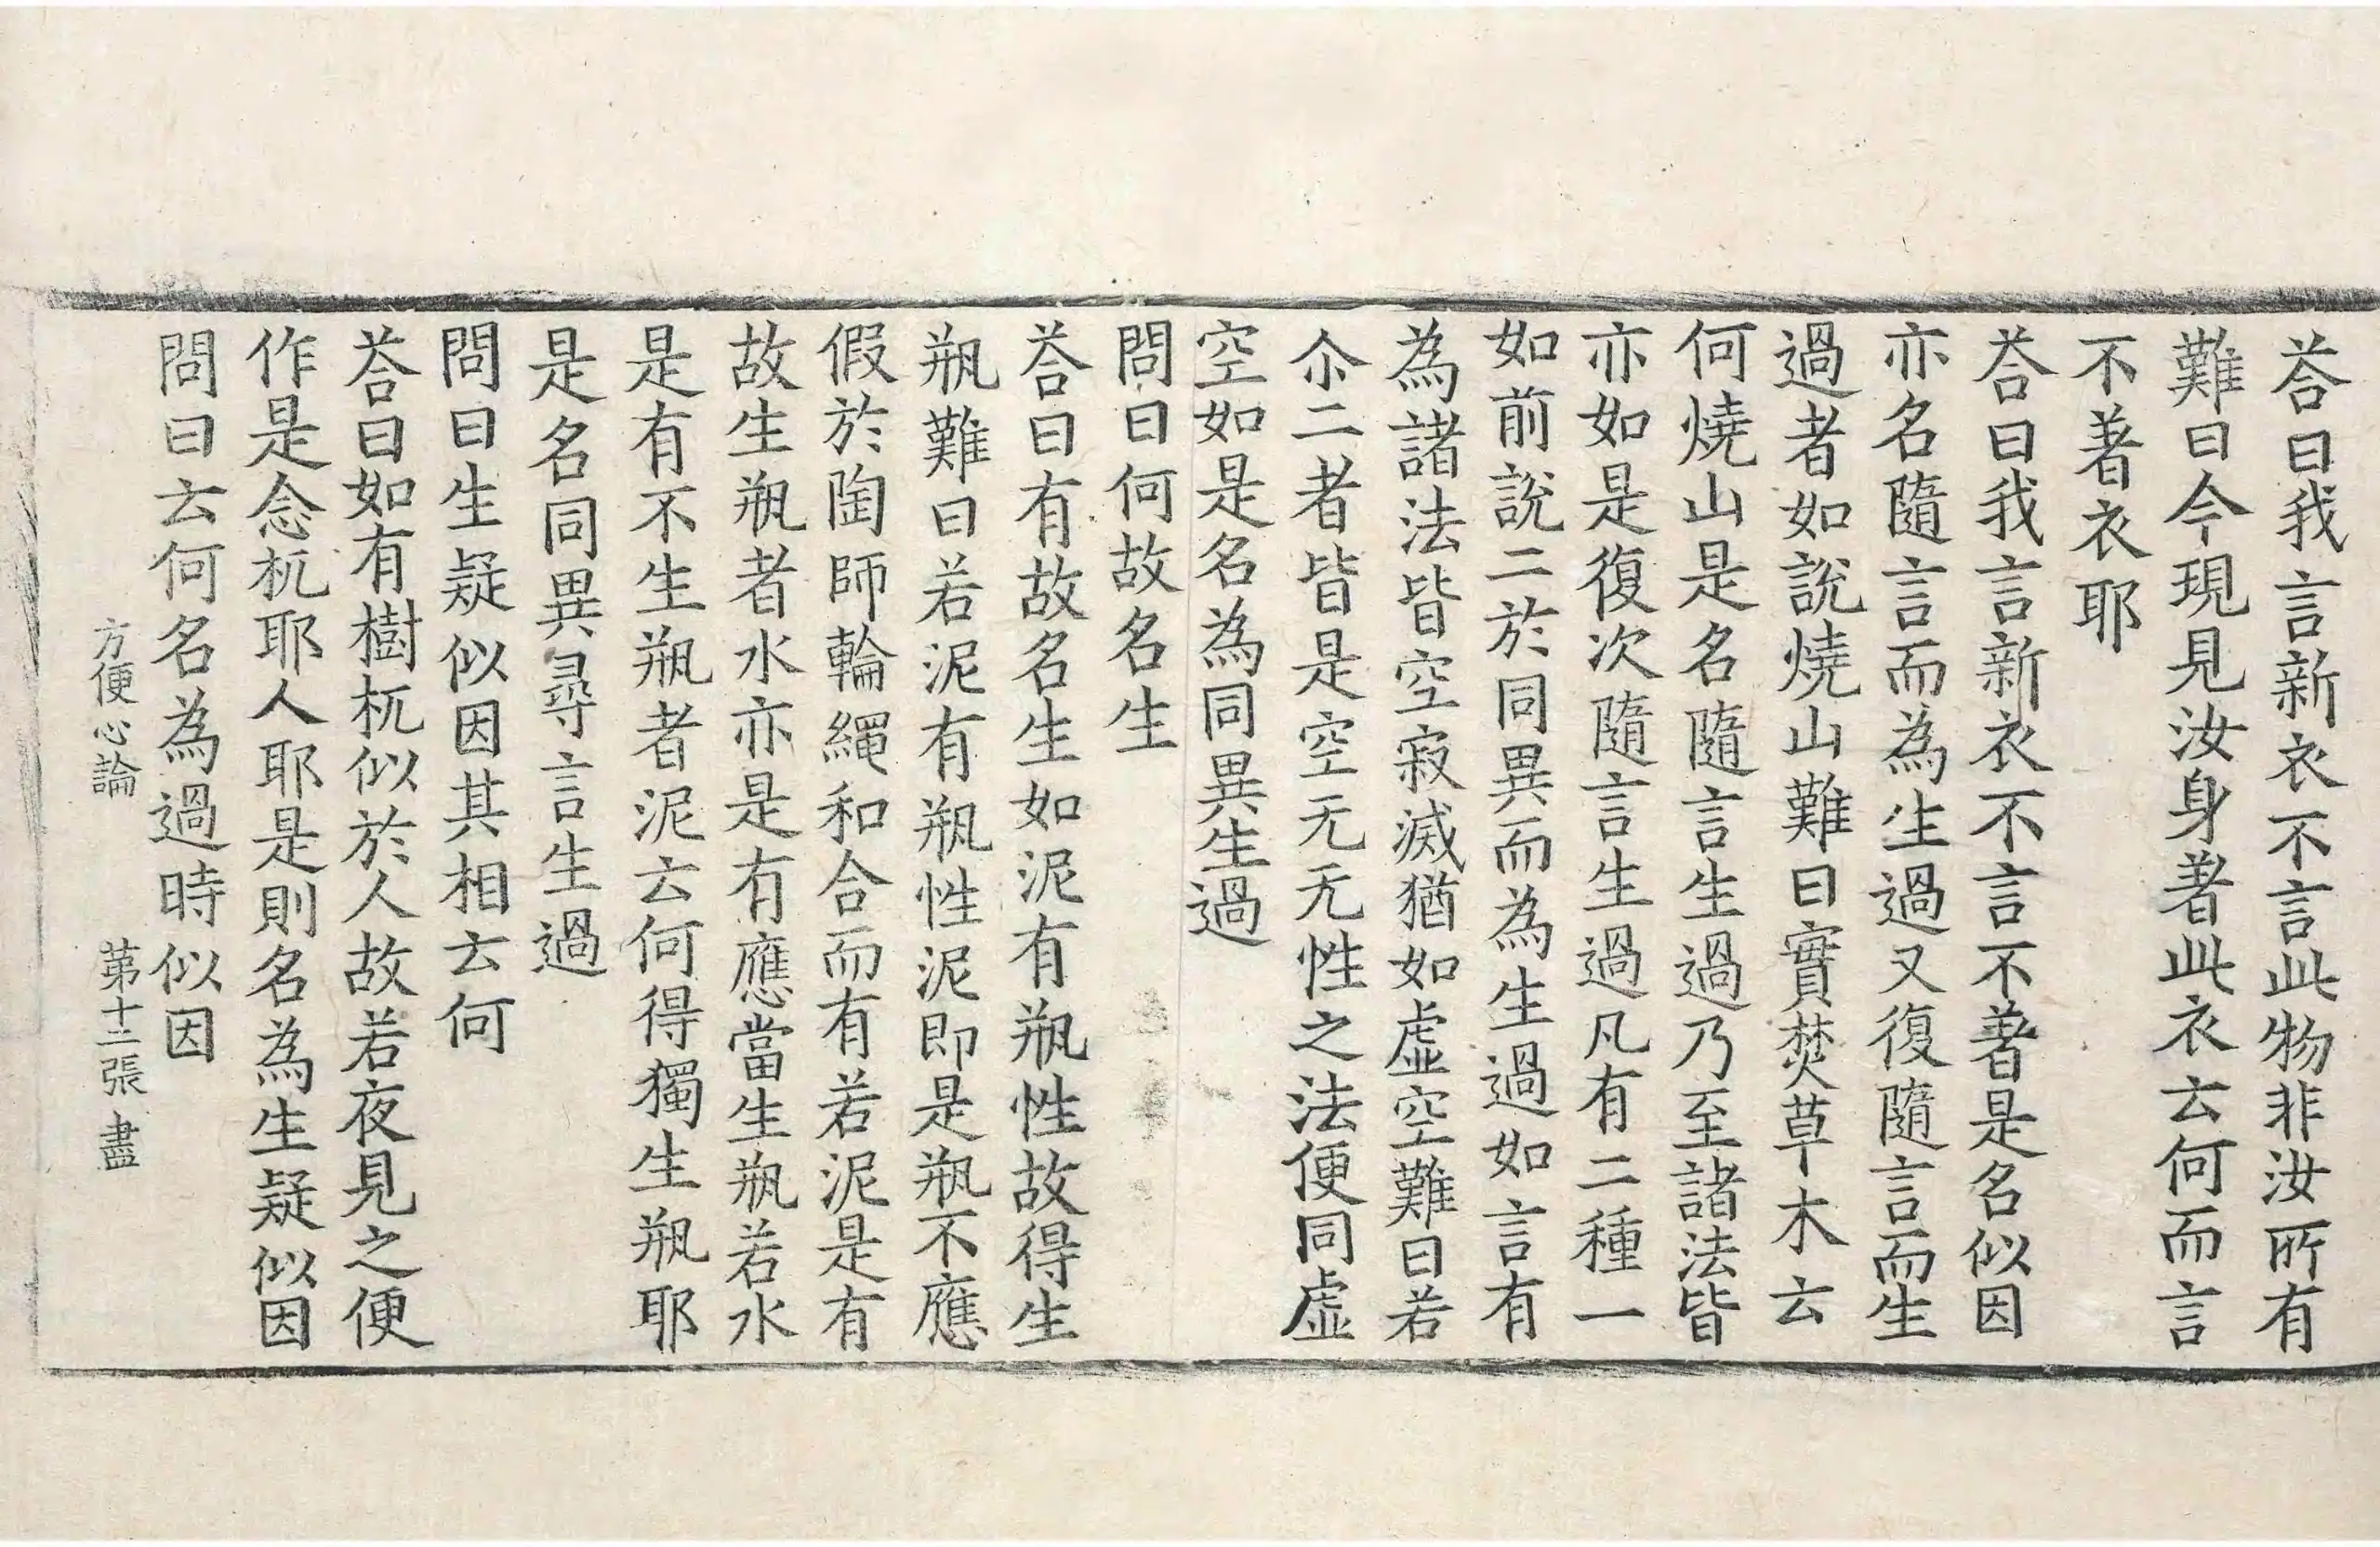 荅曰我言新衣不言此物非汝所有
難曰今現見汝身著此衣云何而言
不著衣耶
荅曰我言新衣不言不著是名似因
亦名隨言而為生過又復隨言而生
過者如說燒山難曰實焚草木云
何燒山是名隨言生過乃至諸法皆
亦如是復次隨言生過凡有二種一
如前說二於同異而為生過如言有
為諸法皆空寂滅猶如虛空難曰若
尒二者皆是空无无性之法便同虛
空如是名為同異生過
問曰何故名生
荅曰有故名生如泥有瓶性故得生
瓶難曰若泥有瓶性泥即是瓶不應
假於陶師輪繩和合而有若泥是有
故生瓶者水亦是有應當生瓶若水
是有不生瓶者泥云何得獨生瓶耶
是名同異尋言生過
問曰生疑似因其相云何
荅曰如有樹杌似於人故若夜見之便
作是念杌耶人耶是則名為生疑似因
問曰云何名為過時似因
方便心論 第十二張 盡